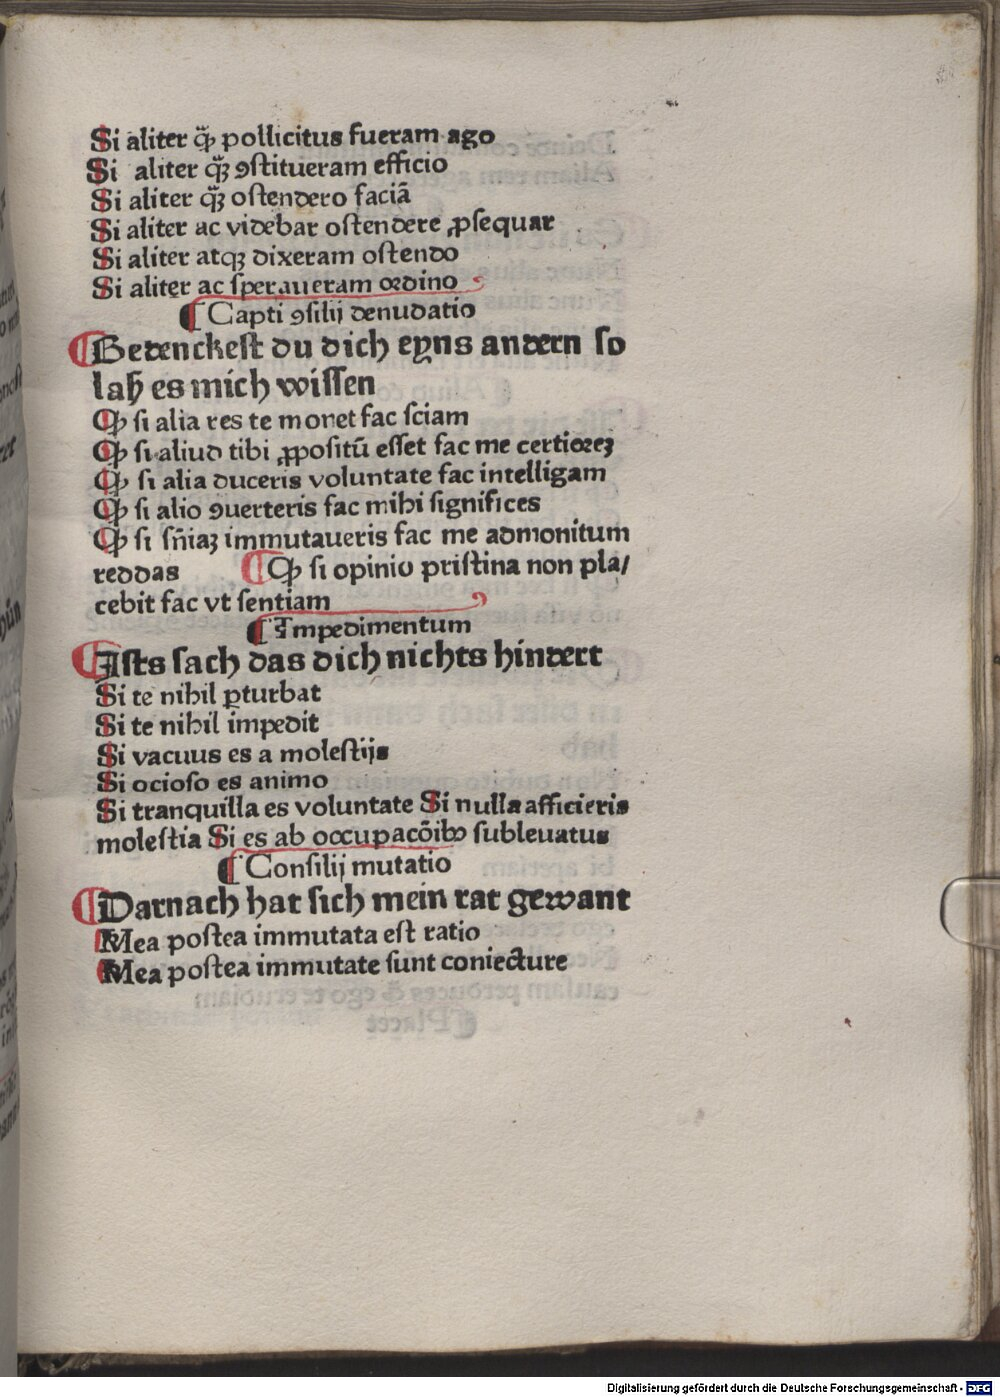 Si aliter ꝙ̃ pollicitus fueram ago
Si aliter qꝫ̃ ꝯstitueram efficio
Si aliter qꝫ̃ ostendero faciā
Si aliter ac videbar ostendere ꝓsequar
Si aliter atqꝫ dixeram ostendo
Si aliter ac speraueram ordino
¶ Capti ꝯsilij denudatio
¶ Bedenckest du dich eyns andern so
laß es mich wissen
Ꝙ si alia res te monet fac sciam
Ꝙ si aliud tibi ꝓpositū esset fac me certiorēꝫ
Ꝙ si alia duceris voluntate fac intelligam
Ꝙ si alio ꝯuerteris fac mihi significes
Ꝙ si sñiaꝫ immutaueris fac me admonitum
reddas ¶ Ꝙ si opinio pristina non pla/
cebit fac vt sentiam
¶ Impedimentum
¶ Ists sach das dich nichts hindert
Si te nihil ꝑturbat
Si te nihil impedit
Si vacuus es a molestijs
Si ocioso es animo
Si tranquilla es voluntate Si nulla afficieris
molestia Si es ab occupacōibꝰ subleuatus
¶ Consilij mutatio
¶ Darnach hat sich mein rat gewant
Mea postea immutata est ratio
Mea postea immutate sunt coniecture
Digitalisierung gefördert durch die Deutsche Forschungsgemeinschaft - DFG